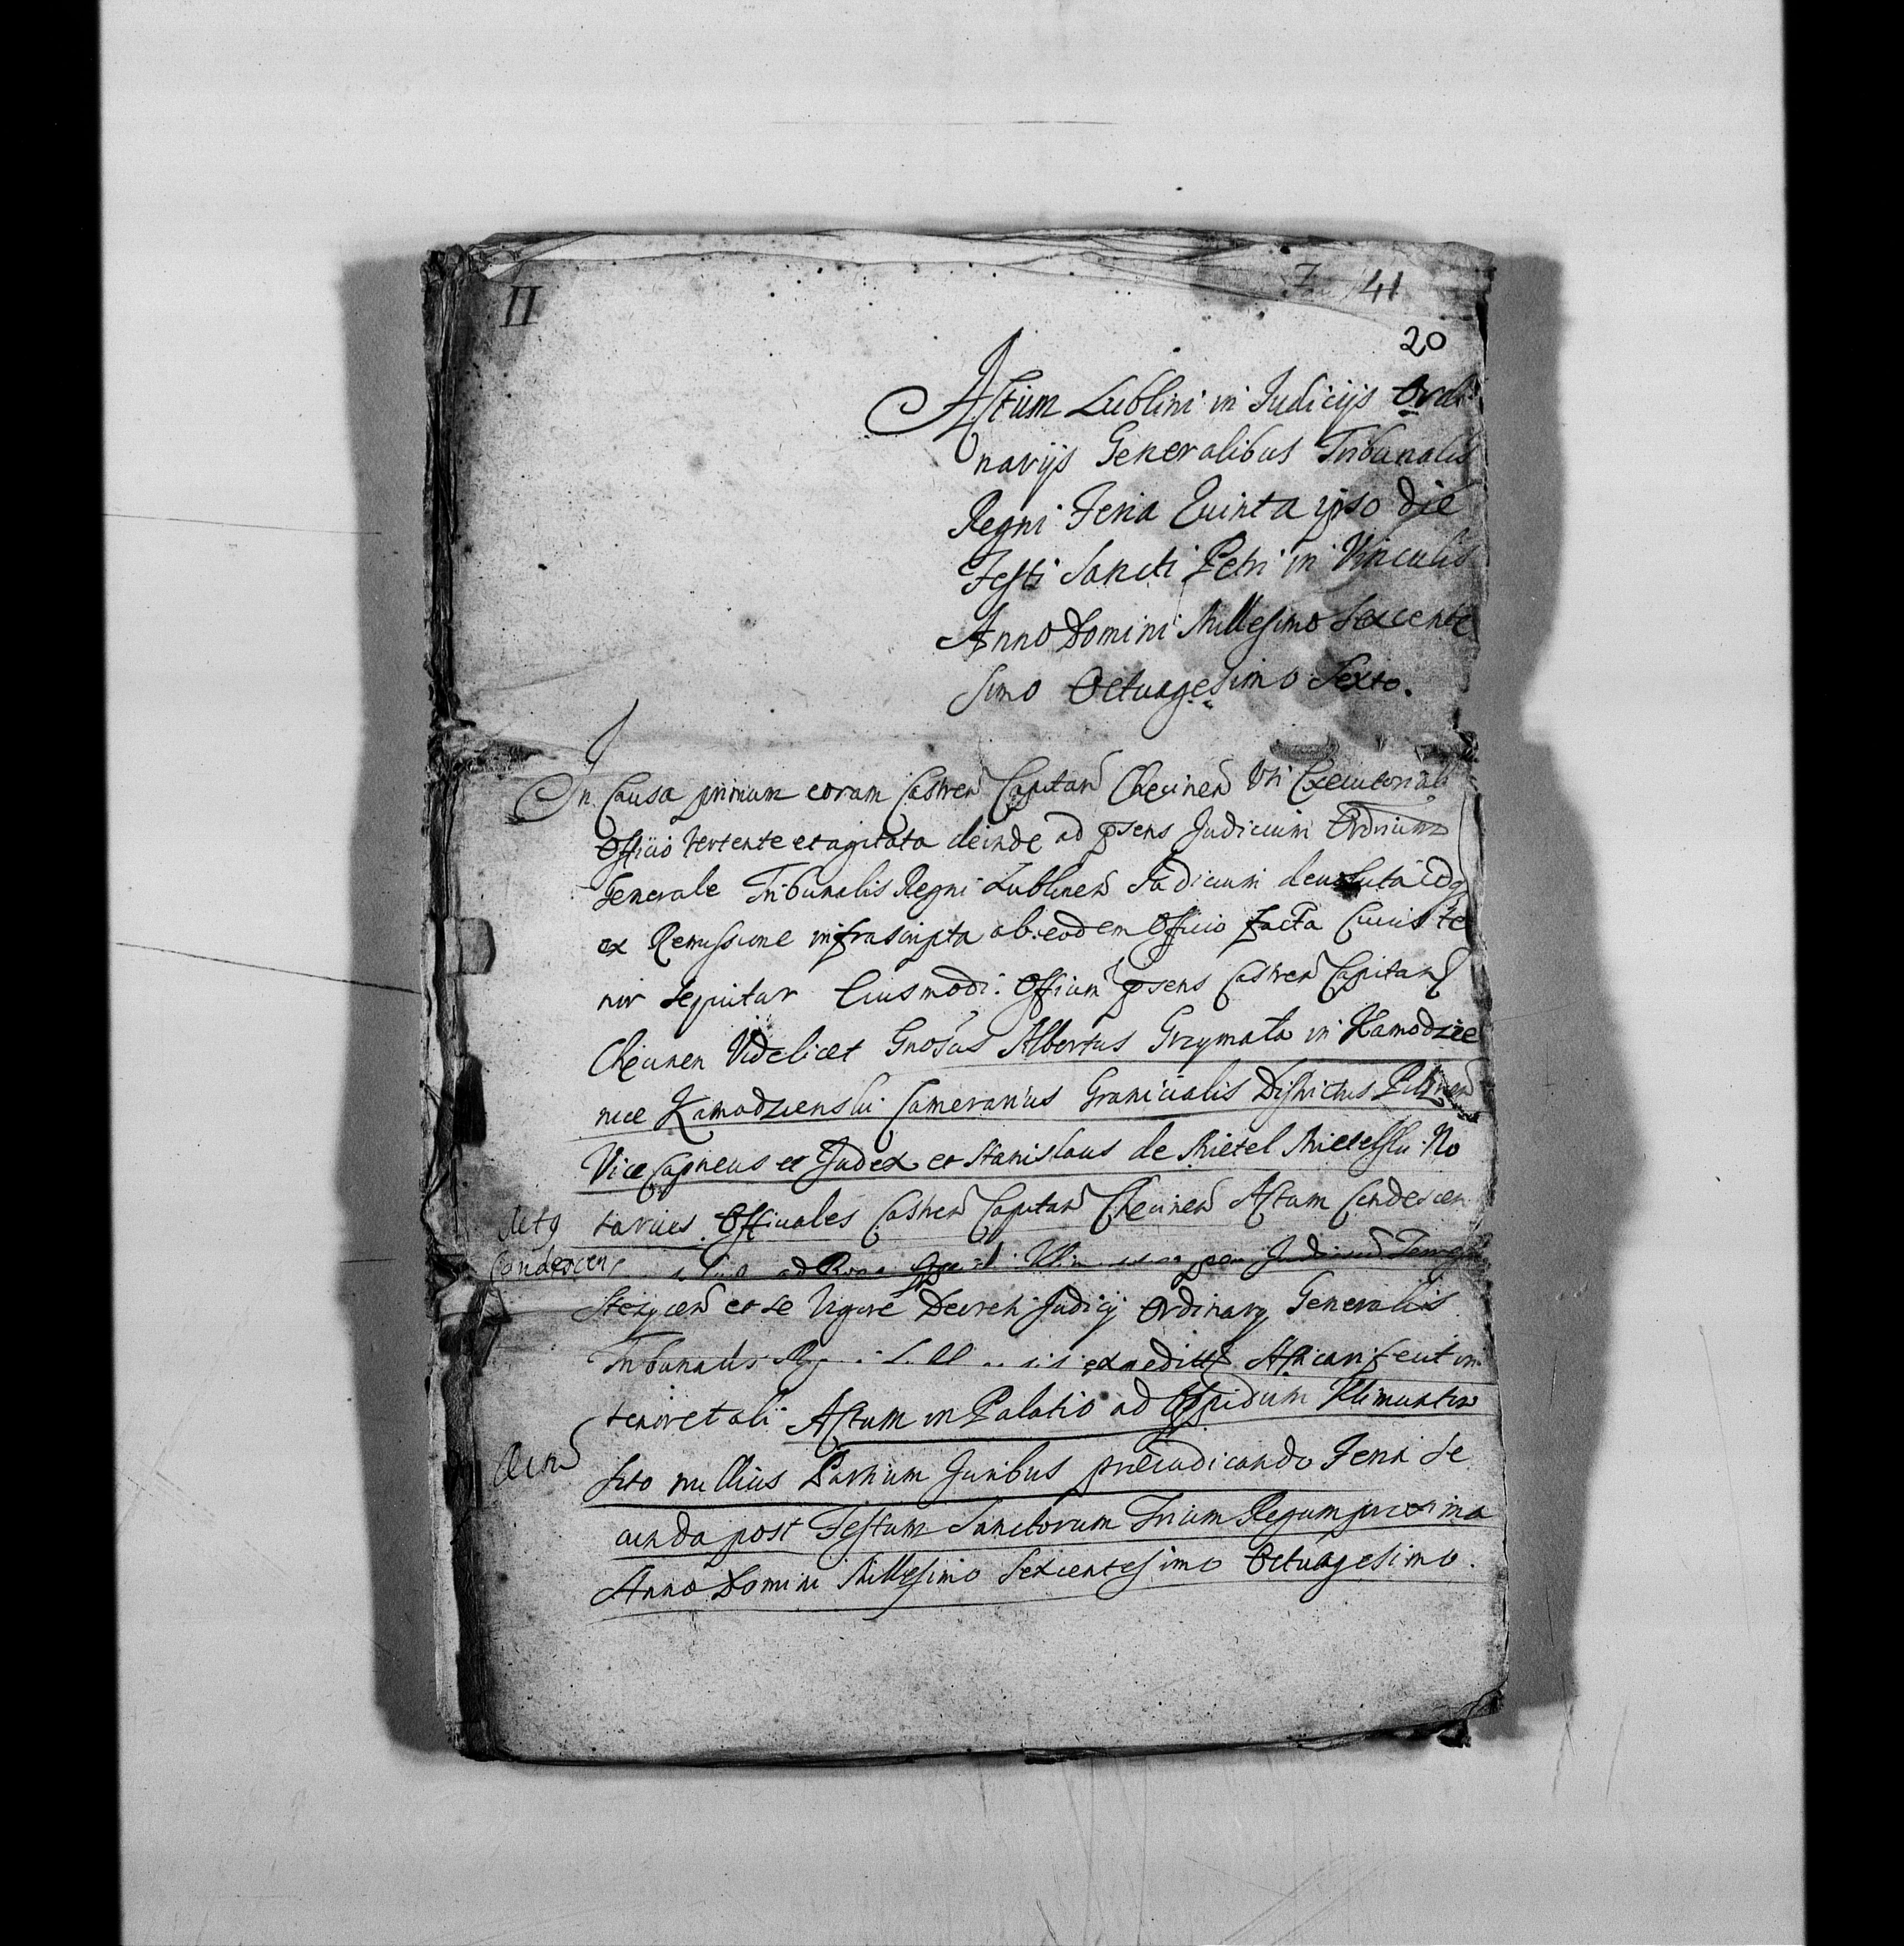 II
41
20
Actum Lublini in Judicijs Ordi
narijs Generalibus Tribunalis
Regni Feria Quinta ipso die
Festi Sancti Petri in Vinculis
Anno Domini Millesimo Sexcente
simo Octuagesimo Sexto.
In Causa primum coram Castren Capitan Checinen Uti Executoriali
Officio vertente et agitata deinde ad psens Judicium Ordrium
Generale Tribunalis Regni Lublinen Judicium devoluta idq
ex Remissione infrascripta ab eodem Officio facta Cuius te
nor sequitur Eiusmodi. Officium psens Castren Capitan
Checinen Videlicet Gnosus Albertus Grzymała in Kamodzie
nice Kamodzienski Camerarius Granicialis Districtus Pilznen
Vice Capneus et Judex et Stanislaus de Mietel Mietelski No
Actg tarius Officiales Castren Capitan Checinen Actum Condescen
Condescen ad
Stezycen et se Vigore Decreti Judicij Ordinarij Generalis
Tribunalis expedit Afficari fecit in
tenore tali Actum in Palatio ad Oppidum Klimuntow
sito nullius Partium Juribus præiudicando Feria Se
cunda post Festum Sanctorum Trium Regum proxima
Anno Domini Millesimo Sexcentesimo Octuagesimo.